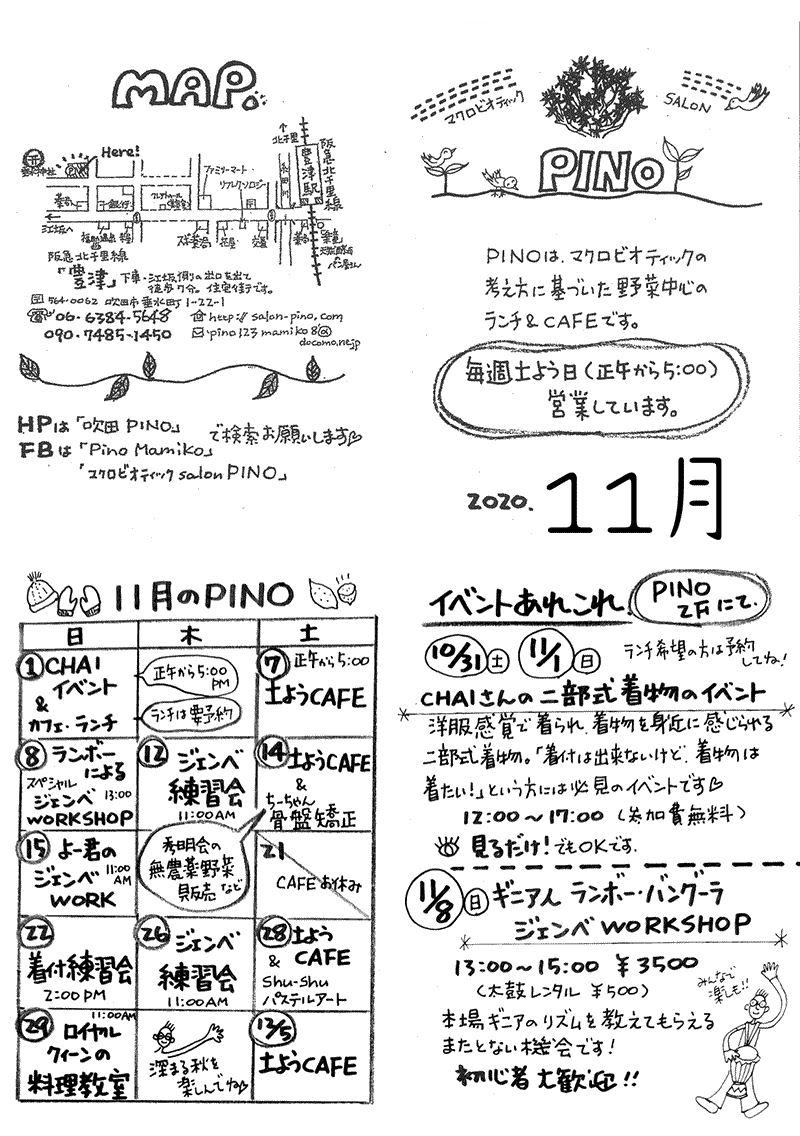 MAP.
Here!
北千里
ファミリーマート
リフレクソロジー
豊津駅
阪急北千里線
江坂へ
スギ薬局
交番
パン屋さん
阪急北千里線
「豊津」下車・江坂側の出口を出て
徒歩7分。住宅街です。
564-0062 吹田市垂水町1-22-1
06-6384-5648
http://salon-pino.com
090-7485-1450
pino123mamiko8@
docomo.ne.jp
HPは「吹田PINO」
FBは「Pino Mamiko」
「マクロビオティックsalon PINO」
で検索お願いします
マクロビオティック
SALON
PINO
PINOは、マクロビオティックの
考え方に基づいた野菜中心の
ランチ&CAFEです。
毎週土よう日(正午から5:00)
営業しています。
2020. 11月
11月のPINO
日 木 土
1 CHAI
イベント
&
カフェ・ランチ
正午から5:00
PM
ランチは要予約
7 正午から5:00
土ようCAFE
8 ランボー
による
スペシャル
ジェンベ 13:00
WORKSHOP
12 ジェンベ
練習会
11:00AM
14 土ようCAFE
&
ちーちゃん
骨盤矯正
15 よー君の
ジェンベ 11:00
AM
WORK
秀明会の
無農薬野菜
販売など
21
CAFEお休み
22
着付練習会
2:00PM
26 ジェンベ
練習会
11:00AM
28 土よう
& CAFE
Shu-Shu
パステルアート
29 11:00AM
ロイヤル
クィーンの
料理教室
深まる秋を
楽しんでね
12/5
土ようCAFE
イベントあれこれ.
PINO
2Fにて.
10/31 土 11/1 日
ランチ希望の方は予約
してね!
CHAIさんの二部式着物のイベント
洋服感覚で着られ、着物を身近に感じられる
二部式着物。「着付は出来ないけど、着物は
着たい!」という方には必見のイベントです
12:00〜17:00 (参加費無料)
見るだけ!でもOKです.
11/8 日 ギニア人 ランボー・バングーラ
ジェンベ WORKSHOP
13:00〜15:00 ¥3500
(太鼓レンタル ¥500)
みんなで
楽しも!!
本場ギニアのリズムを教えてもらえる
またとない機会です!
初心者大歓迎!!